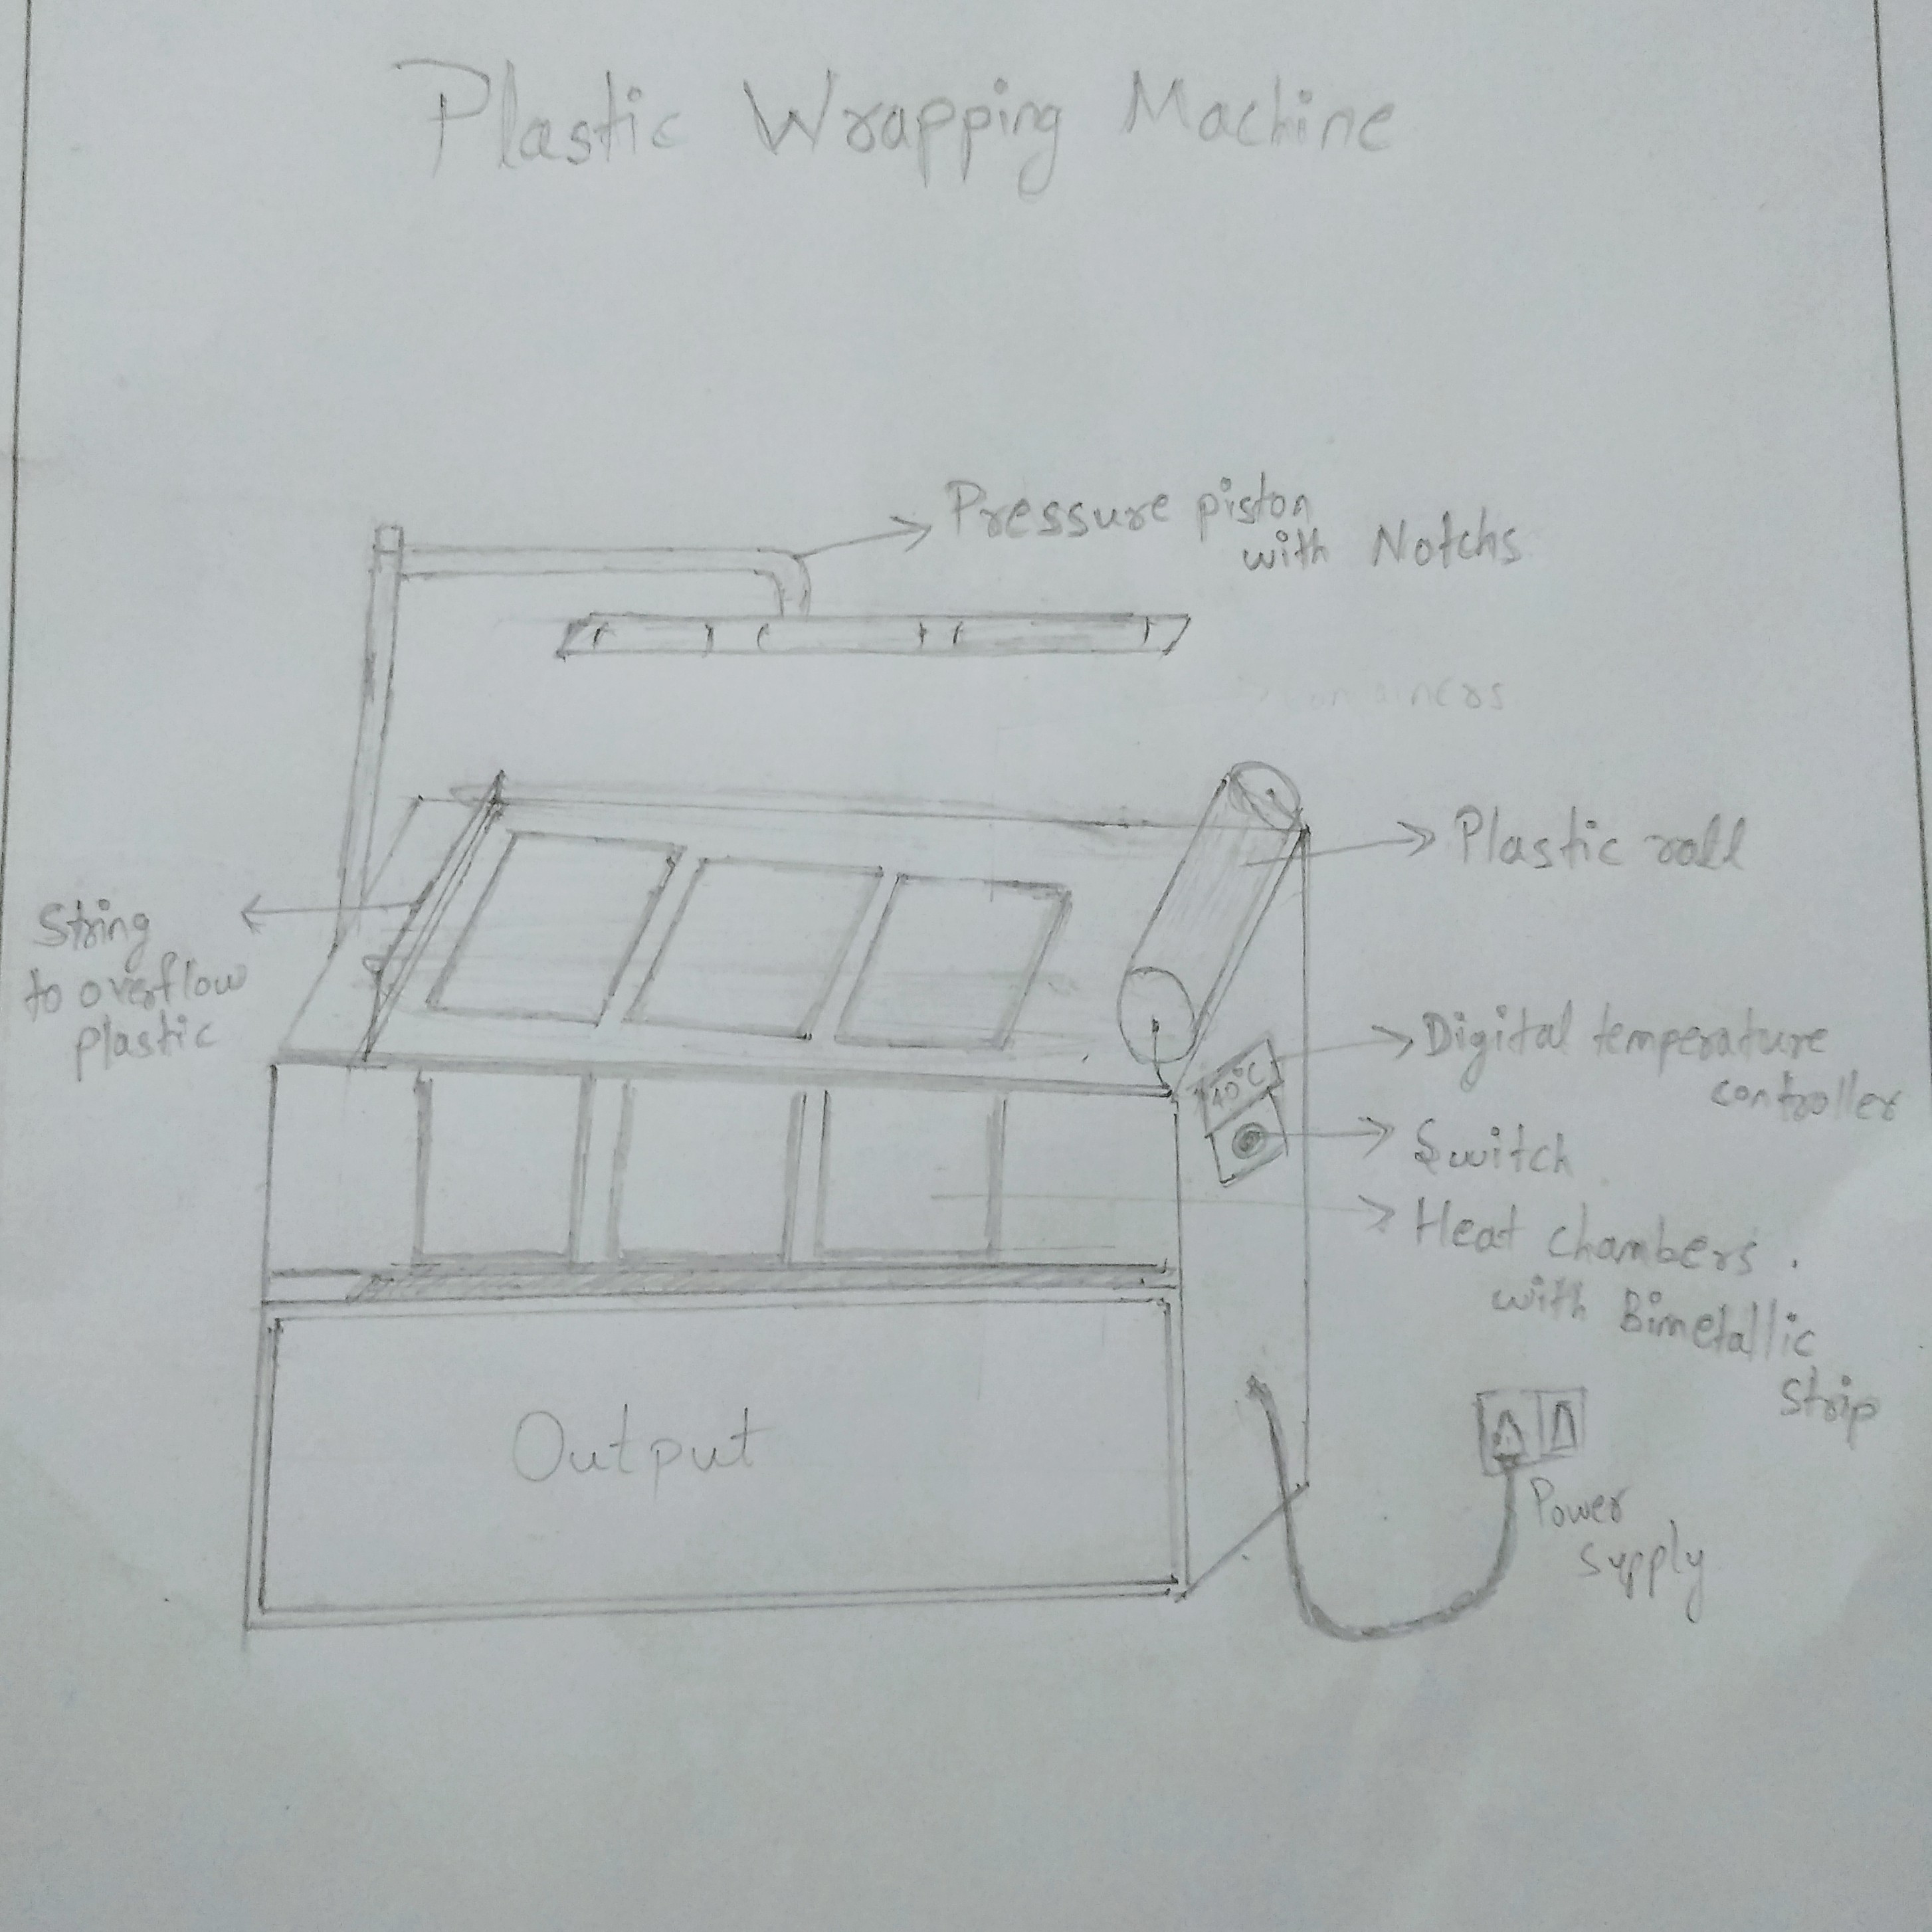 Plastic Wrapping Machine
Pressure piston
with Notchs
Plastic roll
String
to overflow
plastic
Digital temperature
controller
40°C
Switch
Heat chambers.
with Bimetallic
Strip
Output
Power
supply